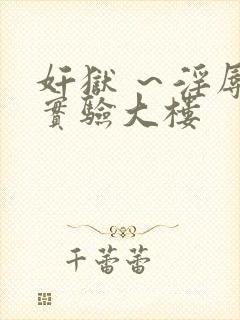 奸獄～淫辱
實驗大樓
千蕾蕾